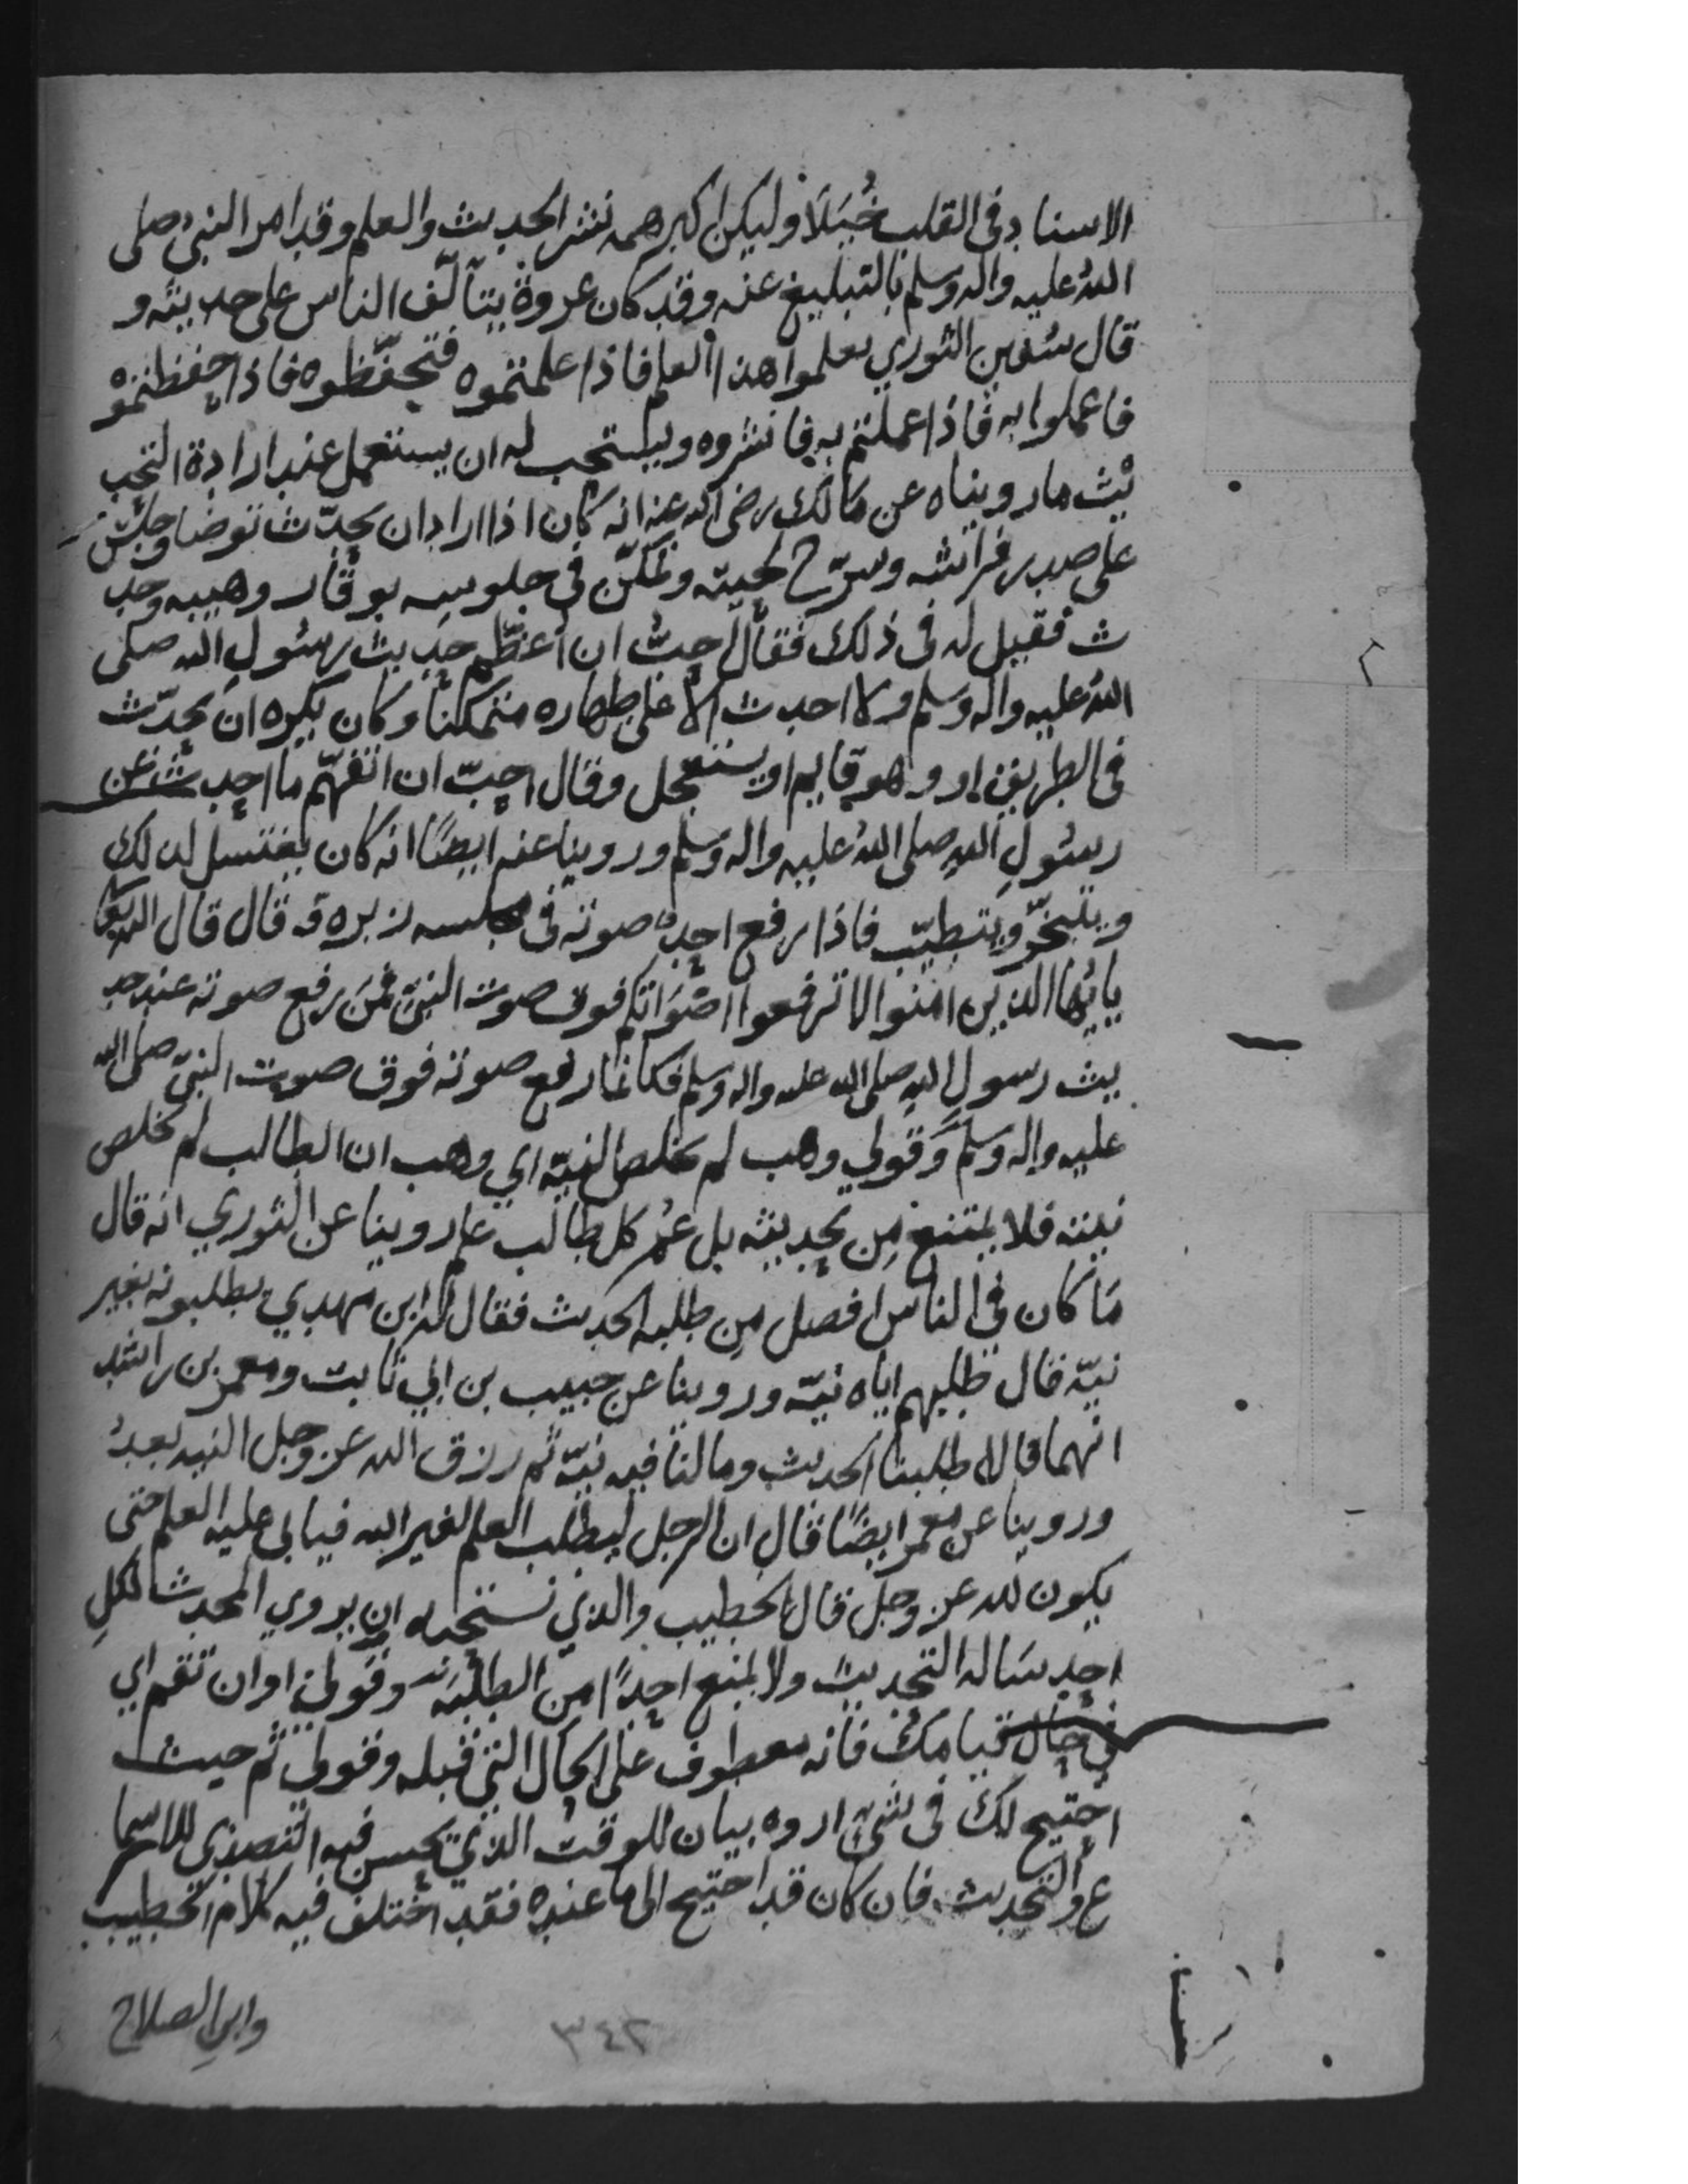 الاسناد في القلب خُيَلَا وليكن اكبر همه نشر الحديث والعلم وقد امر النبي صلى
اللهُ عليه واله وسلم بالتبليغ عنه وقد كان عروة يتألّف الناس على حديثه و
قال سُفين الثوري تعلموا هذا العلم فاذا علمتموه فتحفّظوه فاذا حفظتموه
فاعملوا به فاذا عملتم به فانشروه ويستحب له ان يستعمل عند ارادة التحد
يث ما رويناه عن مالك رضى الله عنه انه كان اذا اراد ان يحدّث توضا وجلس
على صدر فراشه وسرّح لحيته وتمكّن في جلوسه بوقار وهيبه وحد
ث فقيل له في ذلك فقال احبُّ ان اُعظّم حديث رسُولِ الله صلى
اللهُ عليه واله وسلم ولا احدث الا على طهاره متمكنًا وكان يكره ان يحدّث
في الطريق او وهو قايم او يستعجل وقال احبّ ان اتفهّم ما احدث عن
رسُولِ اللهِ صلى اللهُ عليه واله وسَلم وروينا عنه ايضًا انه كان يغتسل لذلك
ويتبخّر ويتطيّب فاذا رفع احدٌ صوته في مجلسه زبره وقال قال الله تعالى
يايُّها الذين امنوا لا ترفعوا اصْوَاتكم فوق صوت النبيّ فمَن رفع صوته عند حد
يث رسول اللهِ صلى الله عليه واله وسلم فكانما رفع صوته فوق صوت النبيّ صلى الله
عليه واله وسلم وَقولي وهب لم يخلص النيّه اي وهب ان الطالب لم يخلص
نيته فلا يمتنع مِن تحديثه بل عُمَّ كل طالب علم روينا عن الثوري انه قال
مَا كان في الناس افضل مِن طلبه الحديث فقال له ابن مهدي يطلبونه بغير
نيّه قال طلبهم اياه نيّه وروينا عن حبيب بن ابي ثابت ومعمر بن راشد
انهما قالا طلبنا الحديث وما لنا فيه نيّه ثم رزق الله عز وجل النيه بعدُ
وروينا عن معمر ايضًا قال ان الرجل ليطلب العلم لغير الله فيابى عليه العلم حتى
يكون لله عز وجل قال الخطيب والذي نستحبه ان يروي المحدث لكلِ
احدٍ سَاله التحديث ولا يمنع احدًا من الطلبَه وقَولي او ان تقم اي
في حال قيامك فانه معطوف على الحال التي قبله وقولي ثم حيث
احتيح لك في شيٍ اروه بيان للوقت الذي يحسن فيه التصدي للاسما
ع والتحديث فان كان قد احتيح الى ما عنده فقد اختلف فيه كلام الخطيب
وابن الصلاح
٣٤٢